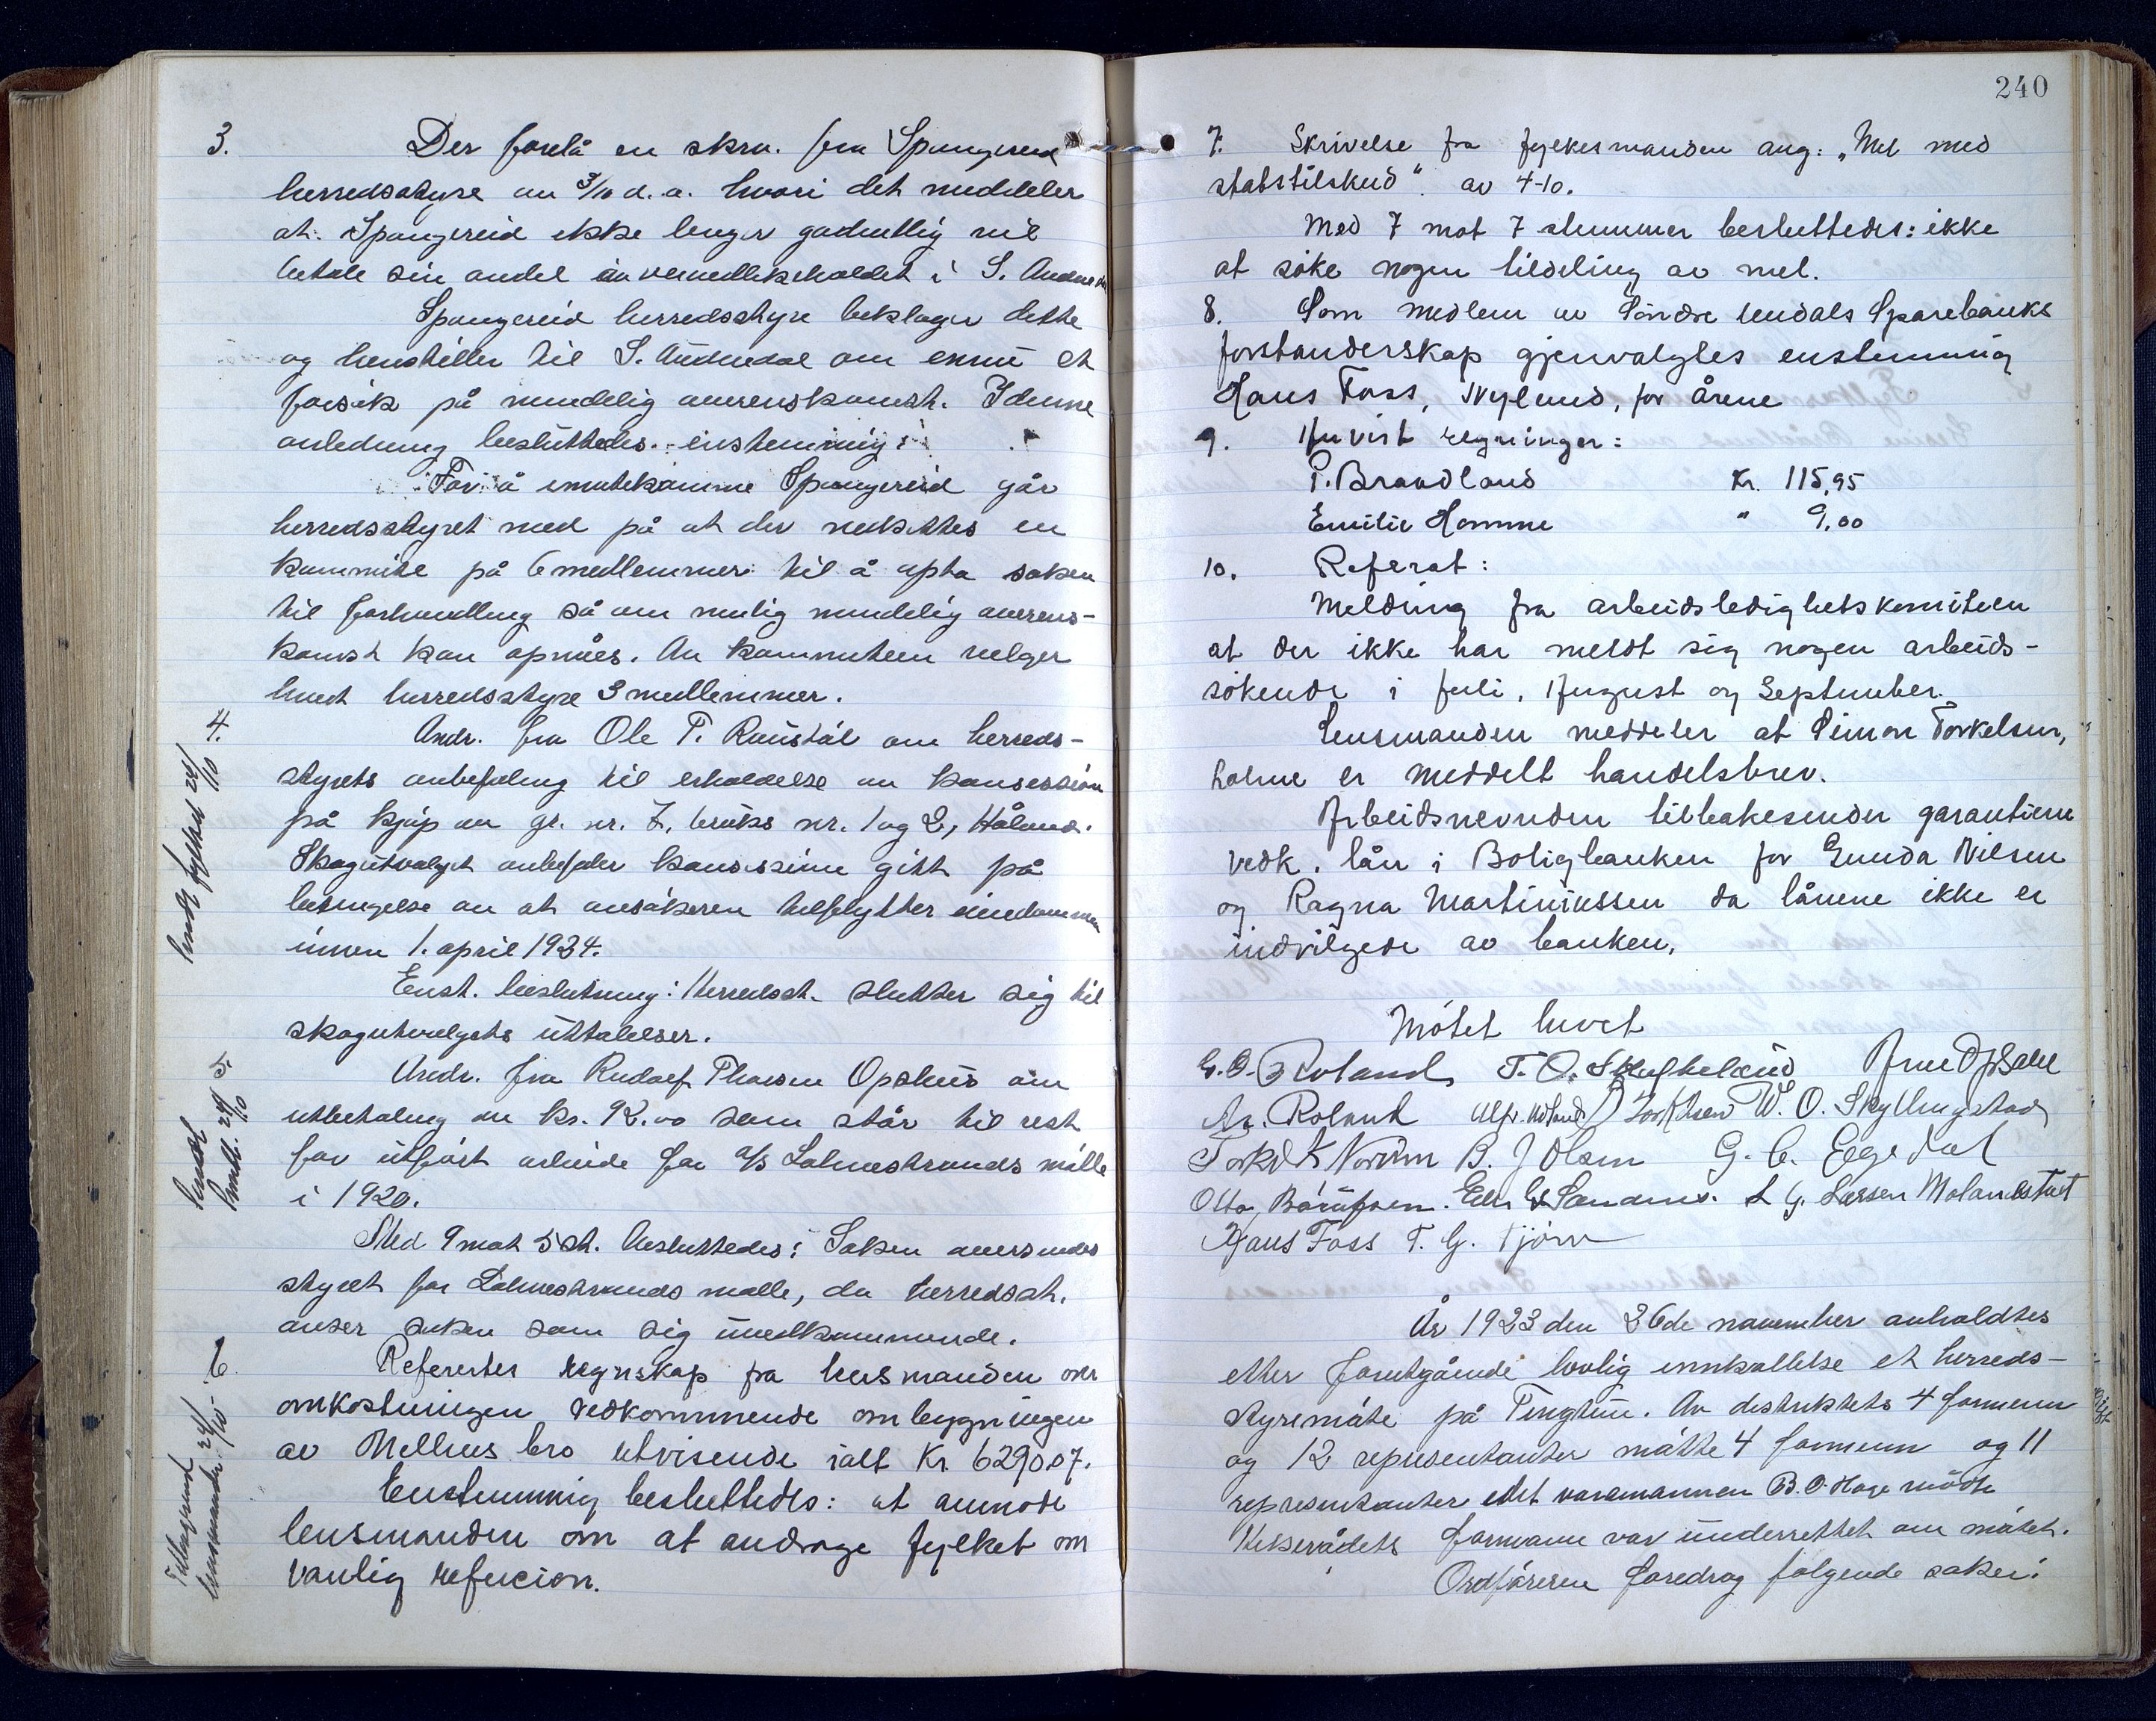 3. Der forelå en skrv. fra Spangereid
herredsstyre av 3/10 d.a. hvori det meddeler
at Spangereid ikke lenger godvillig vil
betale sin andel av vemedlikeholdet i S. Audnedal
Spangereid herredsstyre beklager dette
og henstiller til S. Audnedal om ennu et
forsök på mindelig overenskomst. I denne
anledning besluttedes enstemmig:
For å imøtekomme Spangereid går
herredsstyret med på at der nedsettes en
kommite på 6 medlemmer til å opta saken
til forhandling så om mulig mindelig overens-
komst kan opnåes. Av kommiteen velger
hvert herredsstyre 3 medlemmer.
4. Andr. fra Ole T. Raustöl om herreds-
styrets anbefaling til erholdelse av konsession
på kjöp av gr. nr. 7, bruks nr. 1 og 2, Höland.
Skogutvalget anbefaler konsesion gitt på
betingelse av at ansökeren tilflytter eiendommen
innen 1. april 1924.
Enst. beslutning: Herredsst. slutter sig til
skogutvalgets uttalelser.
sendt fylket 24/10
5. Andr. fra Rudolf Thorsen Opshus om
utbetaling av kr. 92.00 som står til rest
for utfört arbeide for a/s Lohnestrands mölle
i 1920.
Med 9 mot 5 st. besluttedes: Saken oversendes
styret for Lohnestrands mølle, da herredsst.
anser saken som sig uvedkommende.
24/10
6. Refertes regnskap fra lensmanden over
omkostningen vedkommende ombygningen
av Melhus bro utvisende ialt Kr. 629007.
Enstemmig besluttedes: at anmode
lensmanden om at andrage fylket om
vanlig refucion.
lensmanden 24/10
240
7. Skrivelse fra fylkesmanden ang: „Mel med
statstilskud". av 4-10.
Med 7 mot 7 stemmer besluttedes: ikke
at söke nogen tildeling av mel.
8. Som medlem av Söndre Undals Sparebanks
forstanderskap gjenvalgtes enstemmig
Hans Foss, Nylund, for årene
9. Anvist regninger:
P. Brandland Kr. 115,95
Emilie Homme " 9,00
10. Referat:
Melding fra arbeidsledighetskomiteen
at der ikke har meldt sig nogen arbeids-
sökende i Juli, August og September.
Lensmanden meddeler at Simon Torkelsen,
holme er meddelt handelsbrev.
Arbeidsnevnden tilbakesender garantierne
vedk. lån i Boligbanken for Gunda Nilsen
og Ragna Martiniussen da lånene ikke er
indvilgede av banken.
Mötet hevet
G. O. Roland T. O. Skofteland Arne Opsahl
As. Roland Alfr. Udland Torkelsen W. O. Skyllingstad
Torkel K Norum B. J Olsen G. C. Eggedal
Otto Bårdsen. L G. Larsen Molandstveit
Hans Foss T. G. Tjörn
År 1923 den 26de november avholdtes
etter forutgående lovlig innkallelse et herreds-
styremöte på Tinghus. Av distriktets 4 formenn
og 12 representanter mötte 4 formenn og 11
representanter idet varamannen B. O. Hage mödte
Helserådets formann var underrettet om mötet.
Ordföreren foredrog fölgende saker: